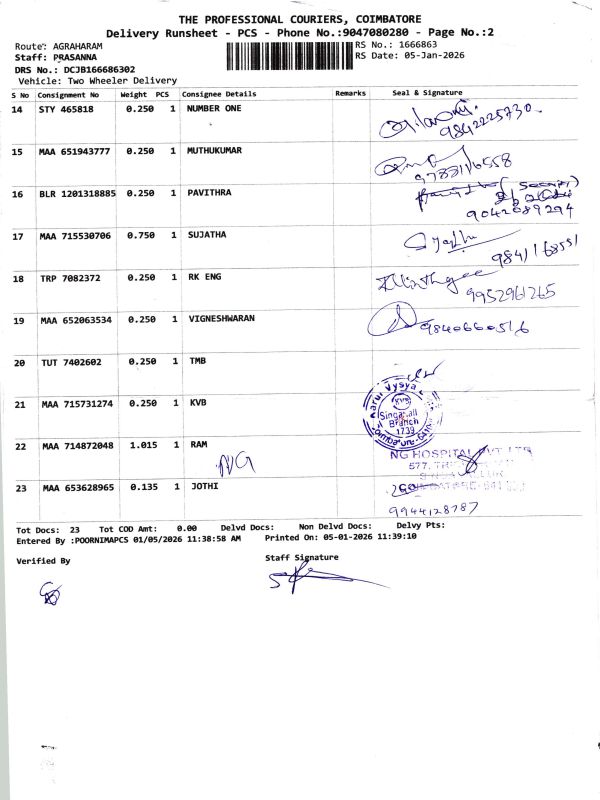 THE PROFESSIONAL COURIERS, COIMBATORE
Delivery Runsheet - PCS - Phone No.:9047080280 - Page No.:2
Route: AGRAHARAM RS No.: 1666863
Staff: PRASANNA RS Date: 05-Jan-2026
DRS No.: DCJB166686302
Vehicle: Two Wheeler Delivery
S No Consignment No Weight PCS Consignee Details Remarks Seal & Signature
14 STY 465818 0.250 1 NUMBER ONE
9842225730
15 MAA 651943777 0.250 1 MUTHUKUMAR
9783116558
16 BLR 1201318885 0.250 1 PAVITHRA
9042089294
17 MAA 715530706 0.750 1 SUJATHA
9841168551
18 TRP 7082372 0.250 1 RK ENG
9952961265
19 MAA 652063534 0.250 1 VIGNESHWARAN
9840660516
20 TUT 7402602 0.250 1 TMB
21 MAA 715731274 0.250 1 KVB
Karur Vysya
KVB
Singanall
Branch
1739
22 MAA 714872048 1.015 1 RAM
NG
NG HOSPITAL PVT LTD
577,
23 MAA 653628965 0.135 1 JOTHI
9944128787
Tot Docs: 23 Tot COD Amt: 0.00 Delvd Docs: Non Delvd Docs: Delvy Pts:
Entered By :POORNIMAPCS 01/05/2026 11:38:58 AM Printed On: 05-01-2026 11:39:10
Verified By Staff Signature